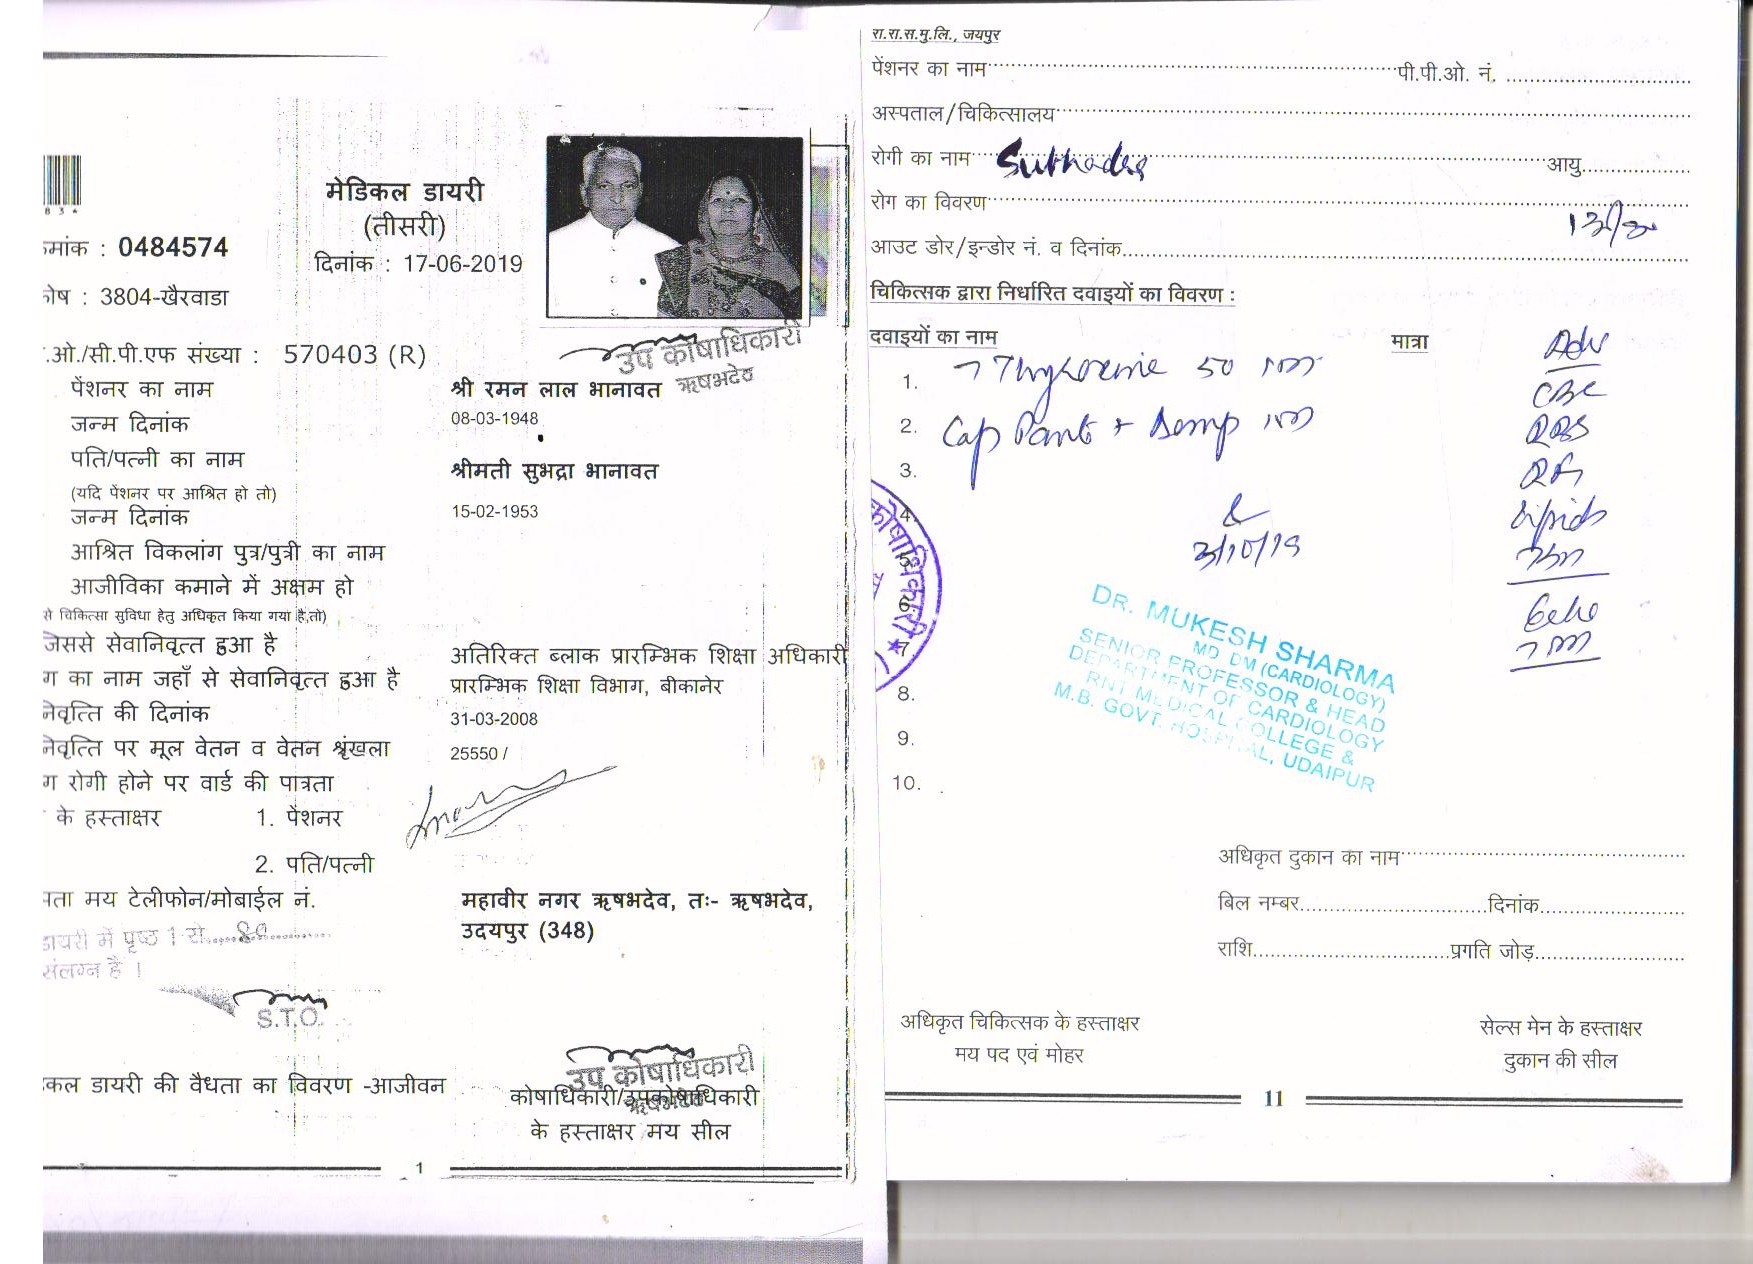 834
मेडिकल डायरी
(तीसरी)
मांक : 0484574
दिनांक : 17-06-2019
ोष : 3804-खैरवाडा
उप कोषाधिकारी
ऋषभदेव
.ओ./सी.पी.एफ संख्या : 570403 (R)
पेंशनर का नाम श्री रमन लाल भानावत
जन्म दिनांक 08-03-1948
पति/पत्नी का नाम श्रीमती सुभद्रा भानावत
(यदि पेंशनर पर आश्रित हो तो)
जन्म दिनांक 15-02-1953
आश्रित विकलांग पुत्र/पुत्री का नाम
आजीविका कमाने में अक्षम हो
से चिकित्सा सुविधा हेतु अधिकृत किया गया है,तो)
जिससे सेवानिवृत्त हुआ है अतिरिक्त ब्लाक प्रारम्भिक शिक्षा अधिकारी
ग का नाम जहाँ से सेवानिवृत्त हुआ है प्रारम्भिक शिक्षा विभाग, बीकानेर
नेवृत्ति की दिनांक 31-03-2008
नेवृत्ति पर मूल वेतन व वेतन श्रृंखला 25550 /
ग रोगी होने पर वार्ड की पात्रता
के हस्ताक्षर 1. पेंशनर
2. पति/पत्नी
पता मय टेलीफोन/मोबाईल नं. महावीर नगर ऋषभदेव, तः- ऋषभदेव,
उदयपुर (348)
डायरी में पृष्ठ 1 से 80
संलग्न है ।
S.T.O.
उप कोषाधिकारी
ऋषभदेव
कल डायरी की वैधता का विवरण -आजीवन
कोषाधिकारी/उपकोषाधिकारी
के हस्ताक्षर मय सील
1
रा.रा.स.मु.लि., जयपुर
पेंशनर का नाम पी.पी.ओ. नं.
अस्पताल/चिकित्सालय
रोगी का नाम Subhadra आयु
रोग का विवरण
आउट डोर/इन्डोर नं. व दिनांक
चिकित्सक द्वारा निर्धारित दवाइयों का विवरण :
दवाइयों का नाम मात्रा Adv
1. Thyroxine 50 CBC
2. Cap Pant + Domp RBS
3. RFT
4. Lipids
5. 3/10/19
6. Echo
7.
8.
9.
10.
कोषाधिकारी
DR. MUKESH SHARMA
MD DM (CARDIOLOGY)
SENIOR PROFESSOR & HEAD
DEPARTMENT OF CARDIOLOGY
RNT MEDICAL COLLEGE &
M.B. GOVT. HOSPITAL, UDAIPUR
अधिकृत दुकान का नाम
बिल नम्बर दिनांक
राशि प्रगति जोड़
अधिकृत चिकित्सक के हस्ताक्षर सेल्स मेन के हस्ताक्षर
मय पद एवं मोहर दुकान की सील
11